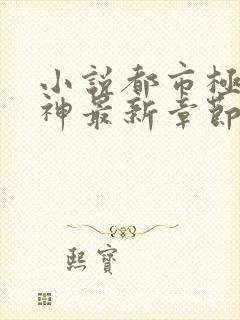 小說都市極
神最新章節
熙寶